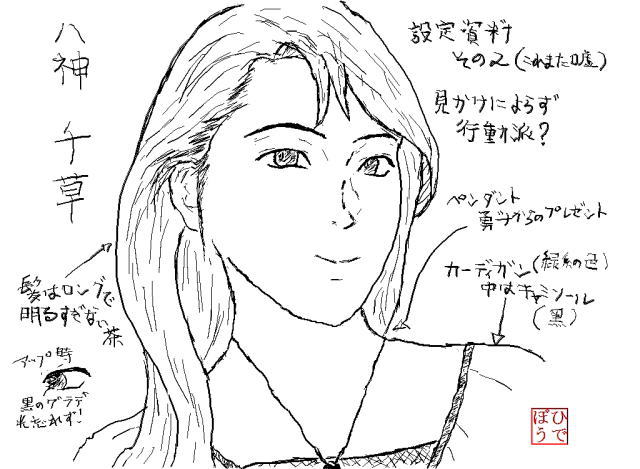 八神 千草
設定資料
その2(これまた嘘)
見かけによらず
行動派?
ペンダント
勇字からのプレゼント
カーディガン(緑系の色)
中はキャミソール
(黒)
髪はロングで
明るすぎない茶
アップ時
黒のグラデ
忘れず!
ひで
ぼう